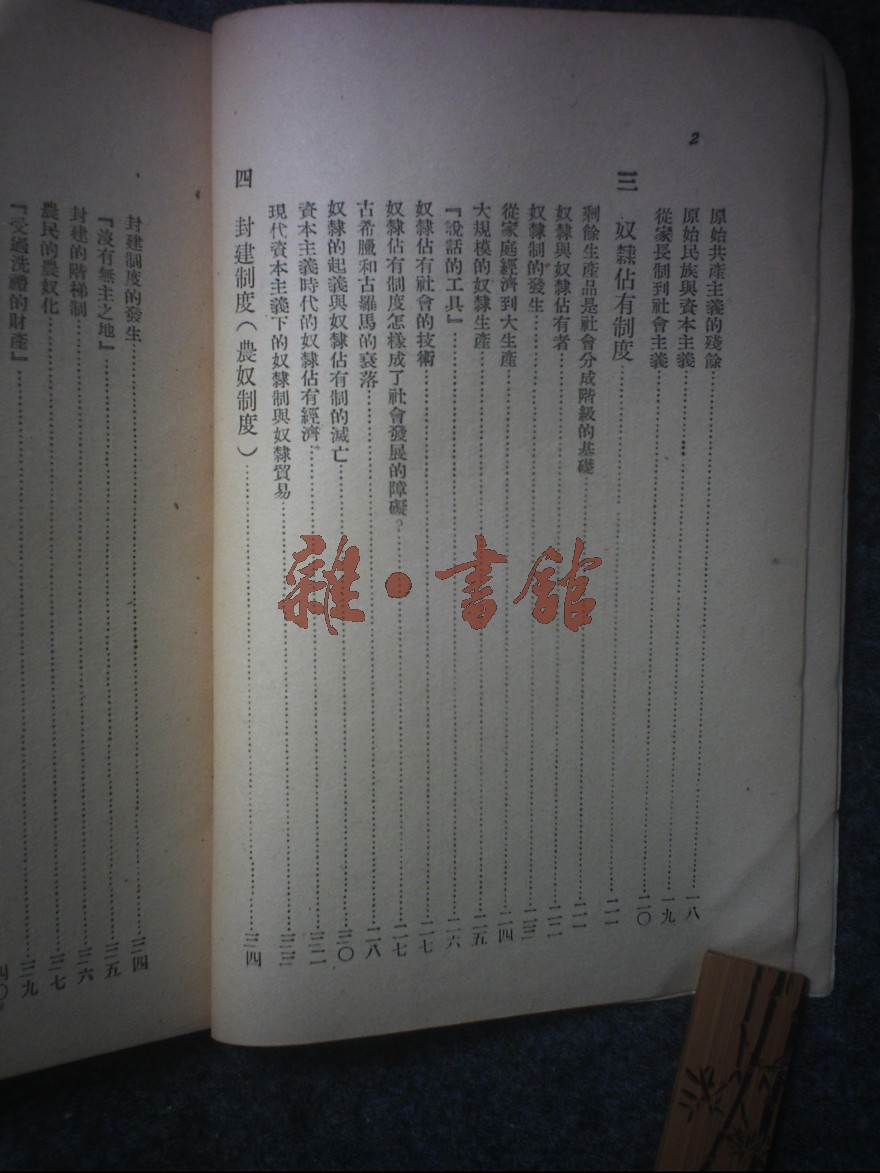 2
原始共產主義的殘餘……一八
原始民族與資本主義……一九
從家長制到社會主義……二〇
三 奴隸佔有制度……二一
剩餘生產品是社會分成階級的基礎……二一
奴隸與奴隸佔有者……二二
奴隸制的發生……二三
從家庭經濟到大生產……二四
大規模的奴隸生產……二五
『說話的工具』……二六
奴隸佔有社會的技術……二七
奴隸佔有制度怎樣成了社會發展的障礙?……二七
古希臘和古羅馬的衰落……二八
奴隸的起義與奴隸佔有制的滅亡……三〇
資本主義時代的奴隸佔有經濟……三二
現代資本主義下的奴隸制與奴隸貿易……三三
四 封建制度(農奴制度)……三四
封建制度的發生……三四
『沒有無主之地』……三五
封建的階梯制……三六
農民的農奴化……三七
『受過洗禮的財產』……三九
四〇
雜·書館